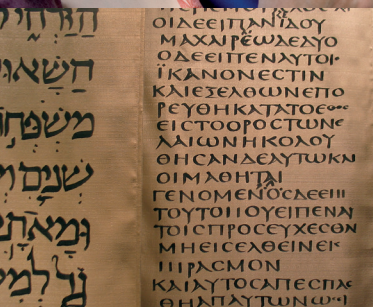 הַשָּׁאוּ
מִשְׁפְּחֹ
שְׁנַיִם
וּמָאתַ
ΟΙΔΕΕΙΠΑΝΙΔΟΥ
ΜΑΧΑΙΡΕΩΔΕΔΥΟ
ΟΔΕΕΙΠΕΝΑΥΤΟΙϹ
ΪΚΑΝΟΝΕϹΤΙΝ
ΚΑΙΕΞΕΛΘΩΝΕΠΟ
ΡΕΥΘΗΚΑΤΑΤΟΕΘΟϹ
ΕΙϹΤΟΟΡΟϹΤΩΝΕ
ΛΑΙΩΝΗΚΟΛΟΥ
ΘΗϹΑΝΔΕΑΥΤΩΚΑΙ
ΟΙΜΑΘΗΤΑΙ
ΓΕΝΟΜΕΝΟϹΔΕΕΠΙ
ΤΟΥΤΟΠΟΥΕΙΠΕΝΑΥ
ΤΟΙϹΠΡΟϹΕΥΧΕϹΘΕ
ΜΗΕΙϹΕΛΘΕΙΝΕΙϹ
ΠΙΡΑϹΜΟΝ
ΚΑΙΑΥΤΟϹΑΠΕϹΠΑϹ
ΘΗΑΠΑΥΤΩΝΩϹ